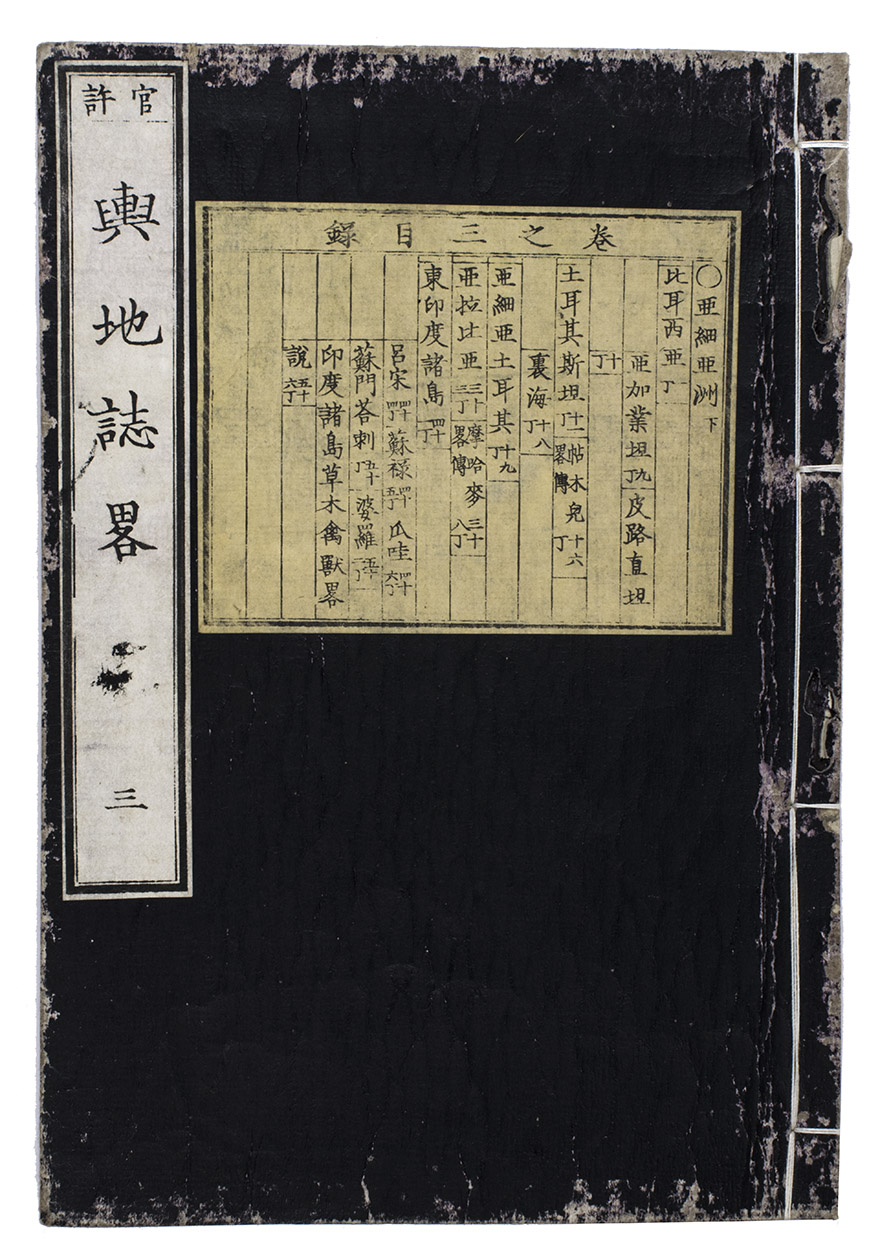 官許
輿地誌畧
三
卷之三目録
○亜細亜洲下
比耳西亜丁一
亜加業坦丁九皮路直坦
丁十
土耳其斯坦丁十二帖木兒畧傳丁十六
裏海丁十八
亜細亜土耳其丁十九
亜拉比亜三十三丁摩哈麥畧傳三十八丁
東印度諸島四十丁
呂宋四十四丁蘇禄四十五丁瓜哇四十六丁
蘇門荅刺五十丁婆羅
印度諸島草木禽獸畧
說五十六丁